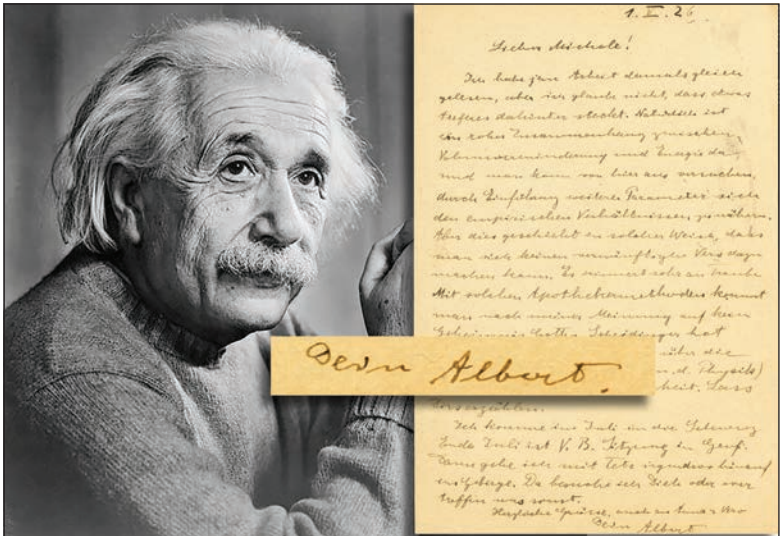 1. V. 26
Lieber Michele!
Ich habe jene Arbeit damals gleich
gelesen, aber ich glaube nicht, dass etwas
tieferes dahinter steckt. Natürlich ist
ein roher Zusammenhang zwischen
Volumverminderung und Energie da,
und man kann von hier aus versuchen,
durch Einführung weiterer Parameter sich
den empirischen Verhältnissen zu nähern.
Aber dies geschieht in solcher Weise, dass
man sich keinen vernünftigen Vers dazu
machen kann. Es erinnert sehr an
Mit solchen Apothekermethoden kommt
man nach meiner Meinung auf kein
Geheimnis Gottes. Schrödinger hat
über die
n. d. Physik)
heit. Lass
Dirs erzählen.
Dein Albert.
Ich komme im Juli in die Schweiz
Ende Juli ist V. B. Sitzung in Genf.
Dann gehe ich mit Tete irgendwo hinauf
ins Gebirge. Da besuche ich Dich oder wir
treffen uns sonst.
Herzliche Grüsse, auch an Anna & Vero
Dein Albert